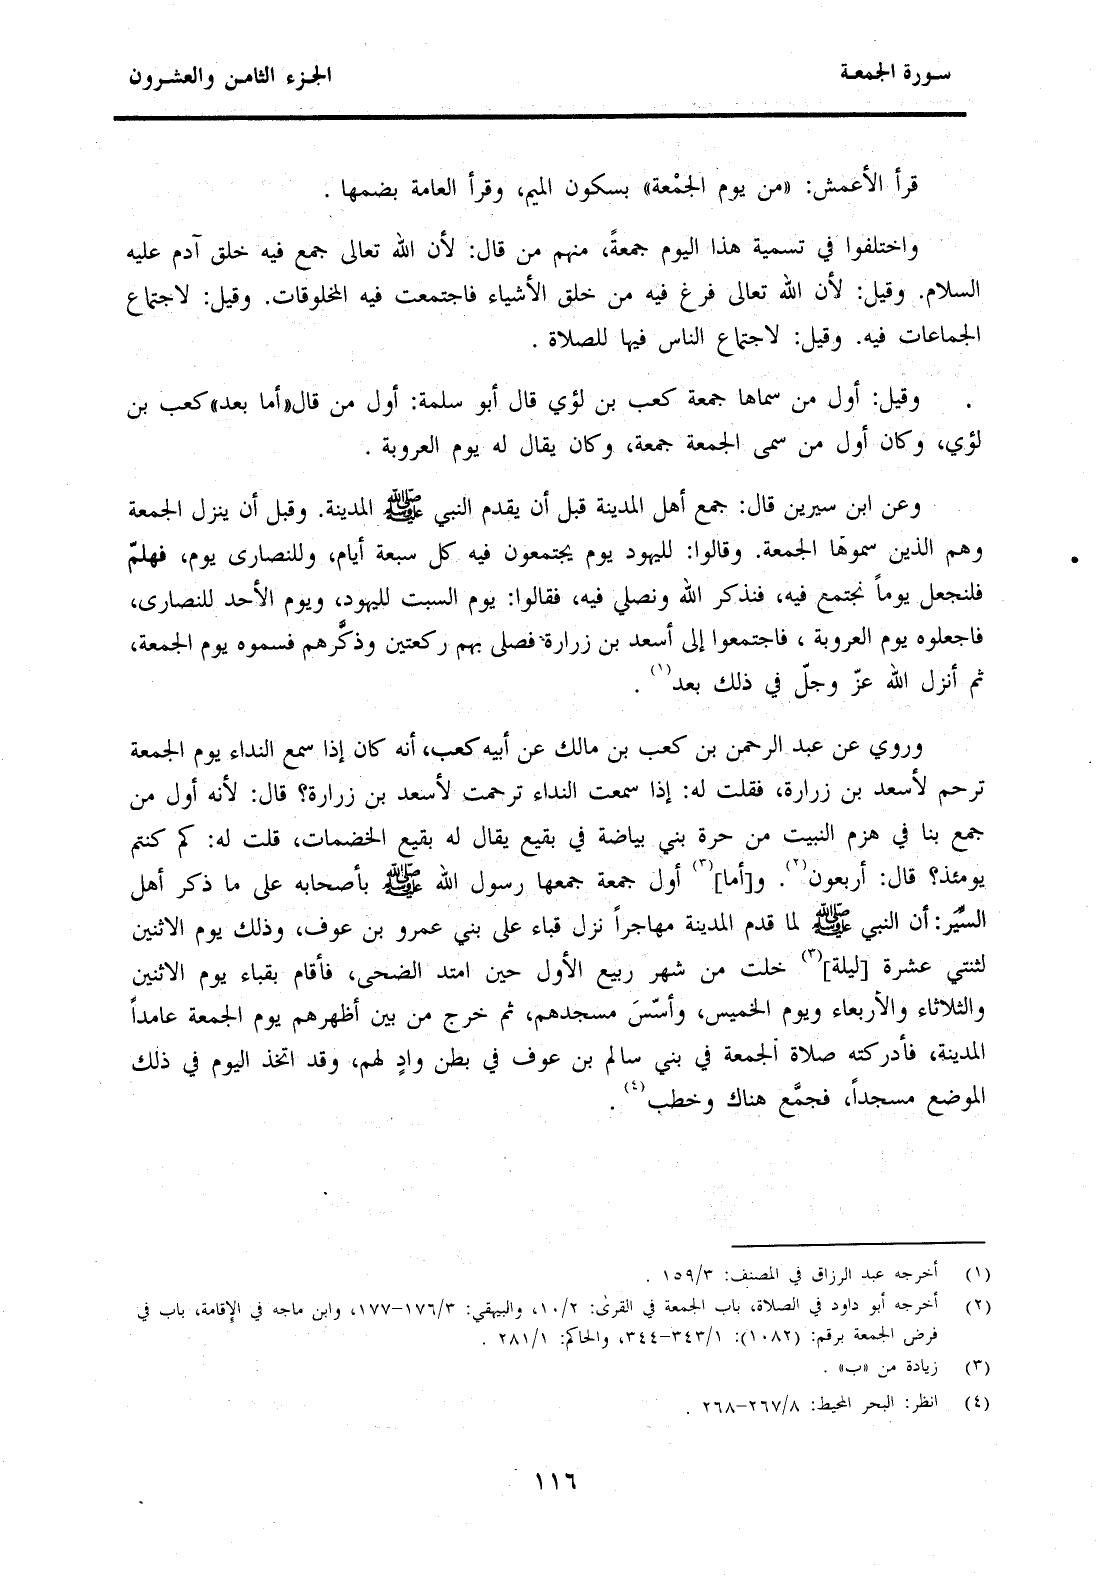 سورة الجمعة
الجزء الثامن والعشرون
قرأ الأعمش: «من يوم الجمْعة» بسكون الميم، وقرأ العامة بضمها .
واختلفوا في تسمية هذا اليوم جمعةً، منهم من قال: لأن الله تعالى جمع فيه خلق آدم عليه
السلام. وقيل: لأن الله تعالى فرغ فيه من خلق الأشياء فاجتمعت فيه المخلوقات. وقيل: لاجتماع
الجماعات فيه. وقيل: لاجتماع الناس فيها للصلاة .
وقيل: أول من سماها جمعة كعب بن لؤي قال أبو سلمة: أول من قال«أما بعد»كعب بن
لؤي، وكان أول من سمى الجمعة جمعة، وكان يقال له يوم العروبة .
وعن ابن سيرين قال: جمع أهل المدينة قبل أن يقدم النبي ﷺ المدينة. وقبل أن ينزل الجمعة
وهم الذين سموها الجمعة. وقالوا: لليهود يوم يجتمعون فيه كل سبعة أيام، وللنصارى يوم، فهلمّ
فلنجعل يوماً نجتمع فيه، فنذكر الله ونصلي فيه، فقالوا: يوم السبت لليهود، ويوم الأحد للنصارى،
فاجعلوه يوم العروبة ، فاجتمعوا إلى أسعد بن زرارة فصلى بهم ركعتين وذكَّرهم فسموه يوم الجمعة،
ثم أنزل الله عزّ وجلّ في ذلك بعد(١) .
وروي عن عبد الرحمن بن كعب بن مالك عن أبيه كعب، أنه كان إذا سمع النداء يوم الجمعة
ترحم لأسعد بن زرارة، فقلت له: إذا سمعت النداء ترحمت لأسعد بن زرارة؟ قال: لأنه أول من
جمع بنا في هزم النبيت من حرة بني بياضة في بقيع يقال له بقيع الخضمات، قلت له: كم كنتم
يومئذ؟ قال: أربعون(٢). و[أما](٣) أول جمعة جمعها رسول الله ﷺ بأصحابه على ما ذكر أهل
السِّيَر: أن النبي ﷺ لما قدم المدينة مهاجراً نزل قباء على بني عمرو بن عوف، وذلك يوم الاثنين
لثنتي عشرة [ليلة](٣) خلت من شهر ربيع الأول حين امتد الضحى، فأقام بقباء يوم الاثنين
والثلاثاء والأربعاء ويوم الخميس، وأسّسَ مسجدهم، ثم خرج من بين أظهرهم يوم الجمعة عامداً
المدينة، فأدركته صلاة الجمعة في بني سالم بن عوف في بطن وادٍ لهم، وقد اتخذ اليوم في ذلك
الموضع مسجداً، فجمَّع هناك وخطب(٤) .
(١) أخرجه عبد الرزاق في المصنف: ١٥٩/٣ .
(٢) أخرجه أبو داود في الصلاة، باب الجمعة في القرى: ١٠/٢، والبيهقي: ١٧٦/٣–١٧٧، وابن ماجه في الإقامة، باب في
فرض الجمعة برقم: (١٠٨٢): ٣٤٣/١–٣٤٤، والحاكم: ٢٨١/١ .
(٣) زيادة من «ب» .
(٤) انظر: البحر المحيط: ٢٦٧/٨–٢٦٨ .
١١٦